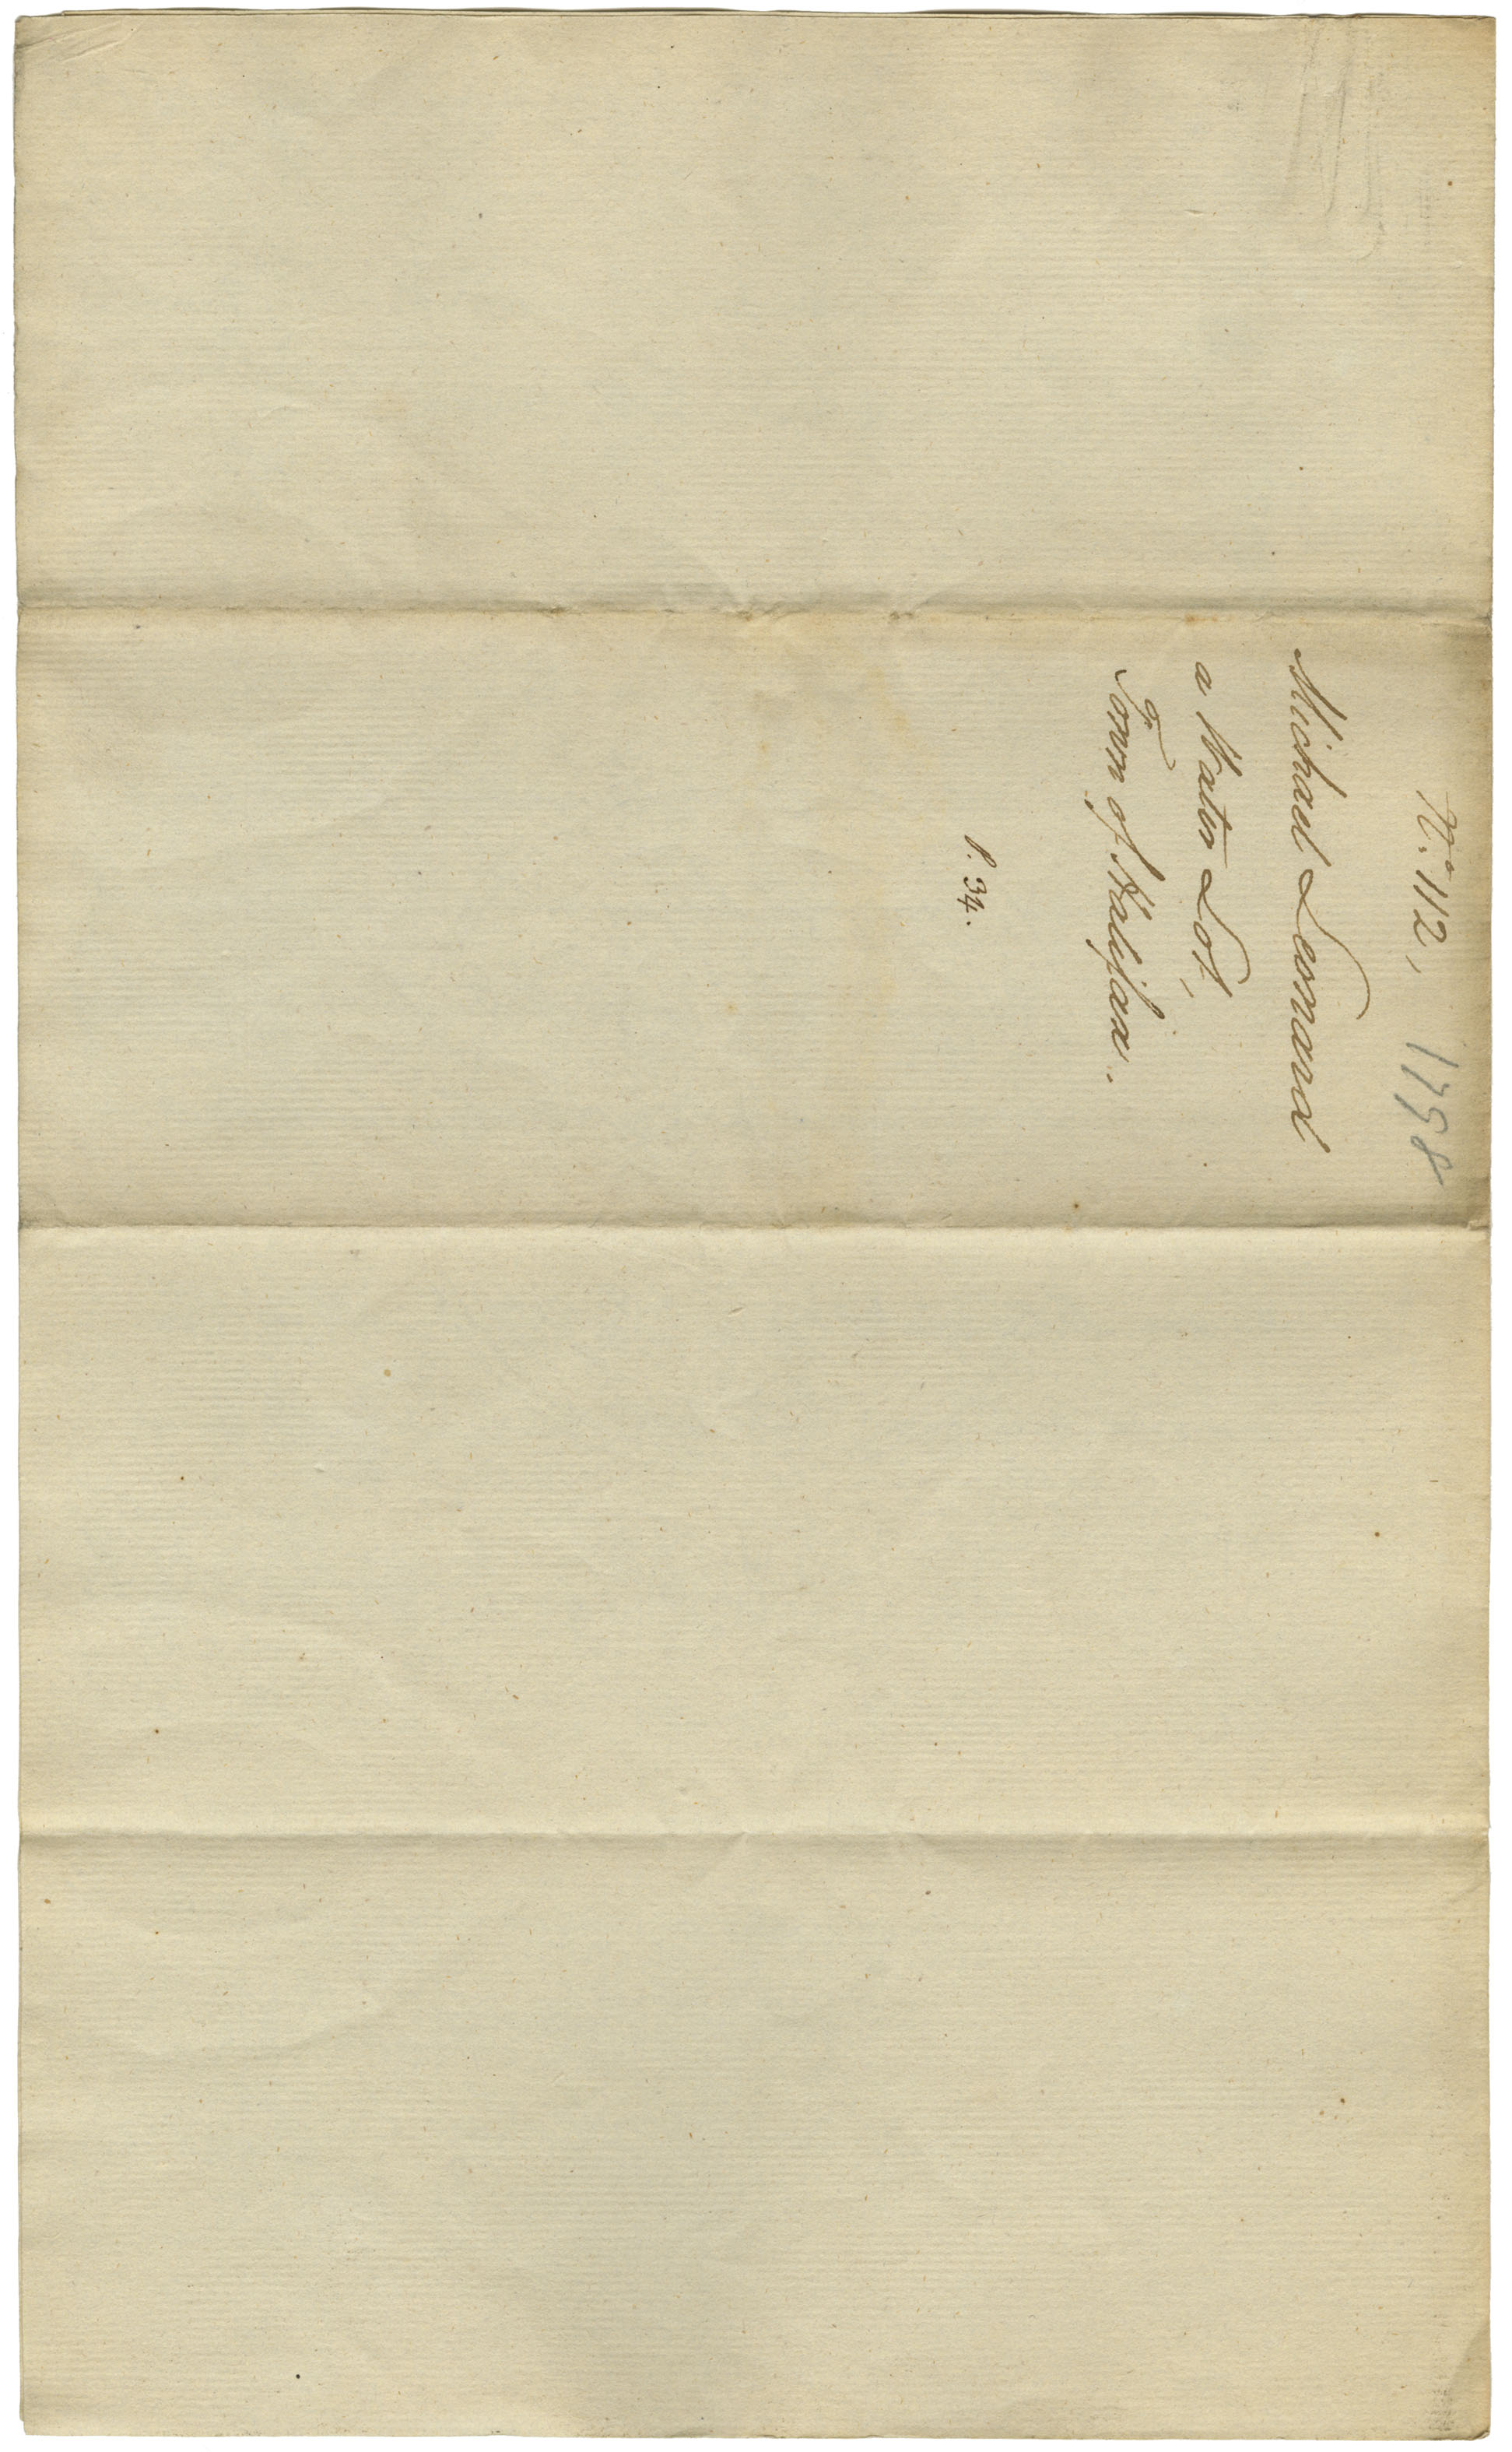 No. 112, 1798
Michael Leonard
a Water Lot,
Town of Halifax.
P. 34.